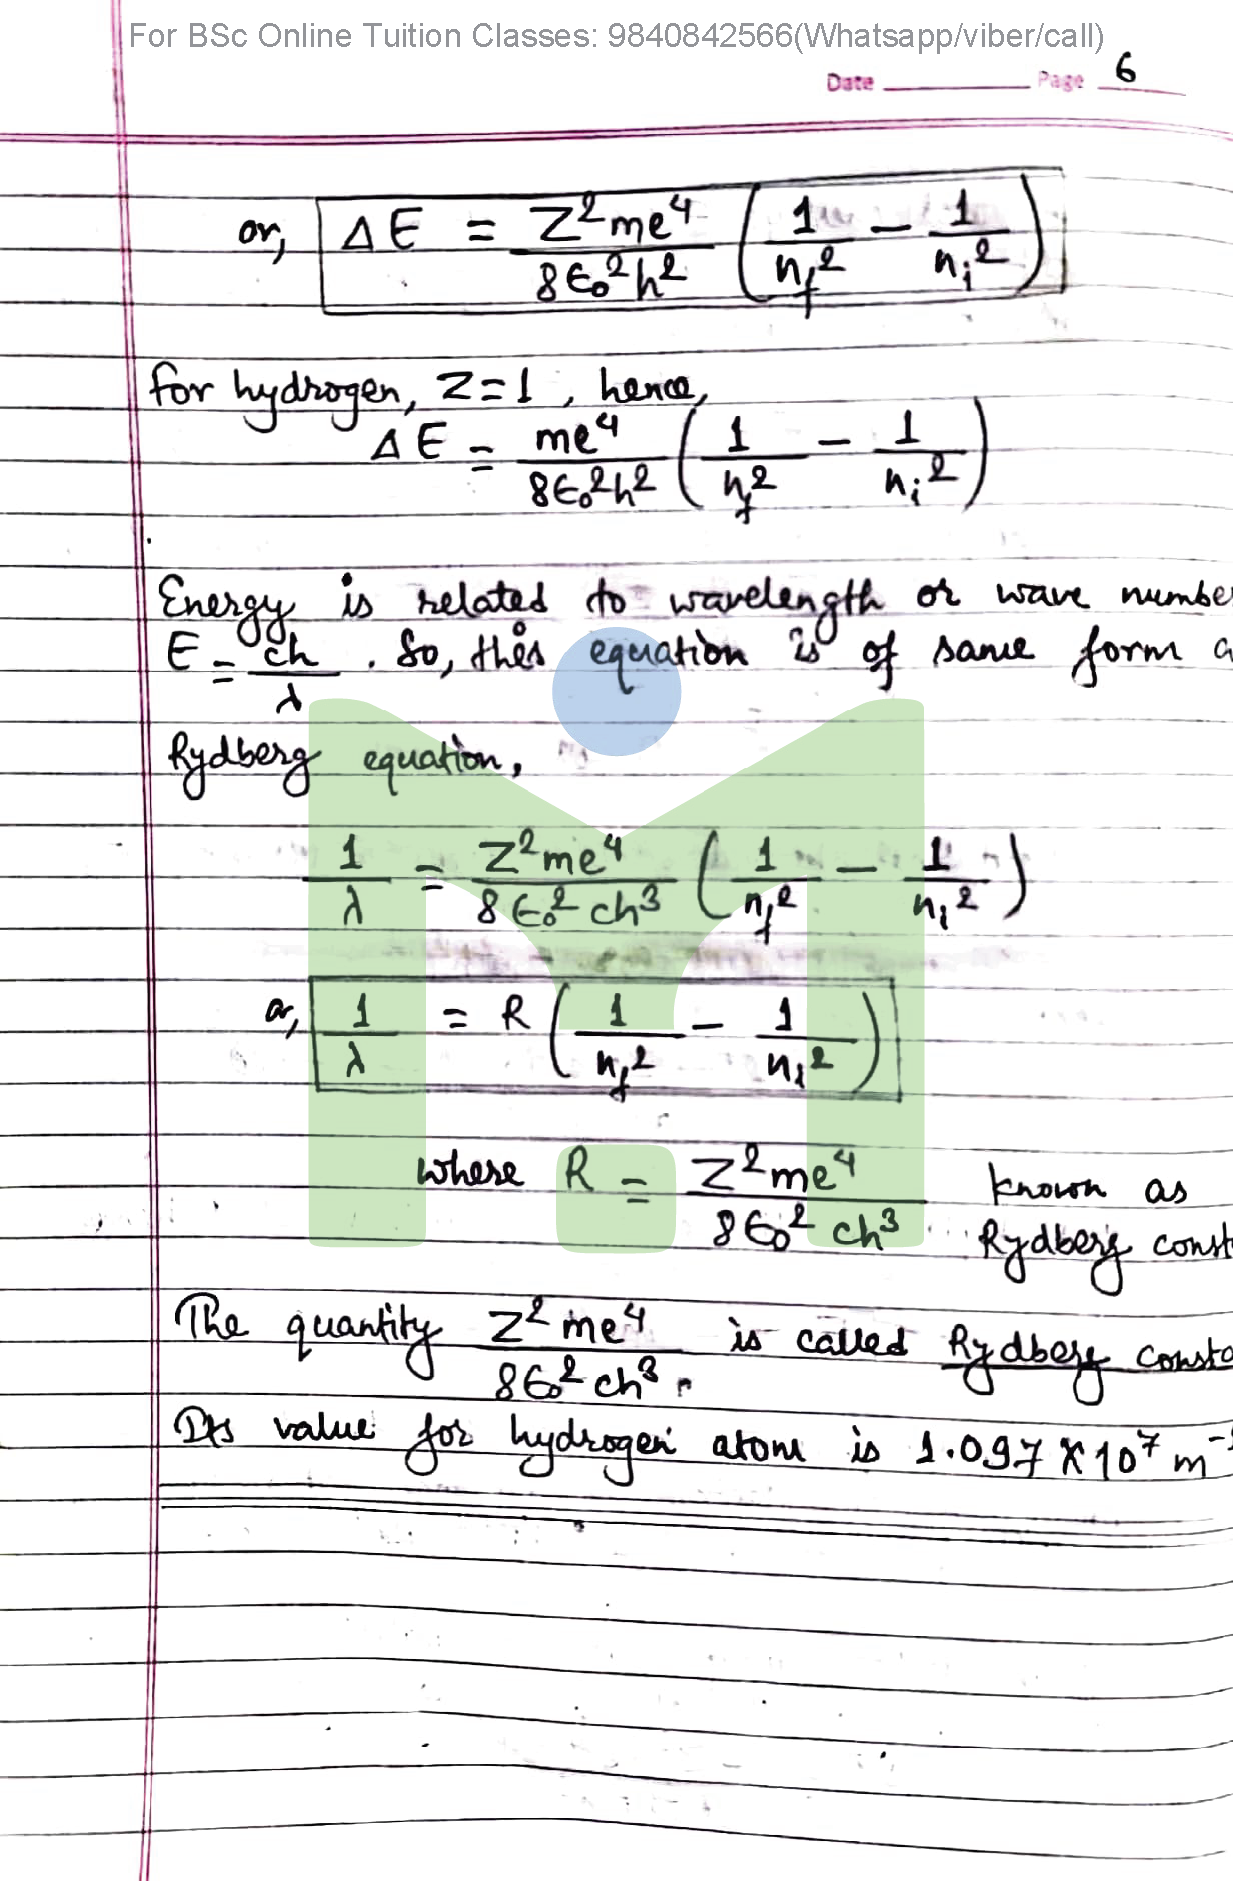 For BSc Online Tuition Classes: 9840842566(Whatsapp/viber/call)
Date Page 6
or, ΔE = Z²me⁴/8ϵ₀²h² (1/n_f² − 1/n_i²)
for hydrogen, Z=1, hence,
ΔE = me⁴/8ϵ₀²h² (1/n_f² − 1/n_i²)
Energy is related to wavelength or wave numbe
E = ch/λ . So, this equation is of same form a
Rydberg equation,
1/λ = Z²me⁴/8ϵ₀²ch³ (1/n_f² − 1/n_i²)
or, 1/λ = R (1/n_f² − 1/n_i²)
where R = Z²me⁴/8ϵ₀²ch³ known as
Rydberg const
The quantity Z²me⁴/8ϵ₀²ch³ is called Rydberg consta
Its value for hydrogen atom is 1.097 × 10⁷ m⁻¹